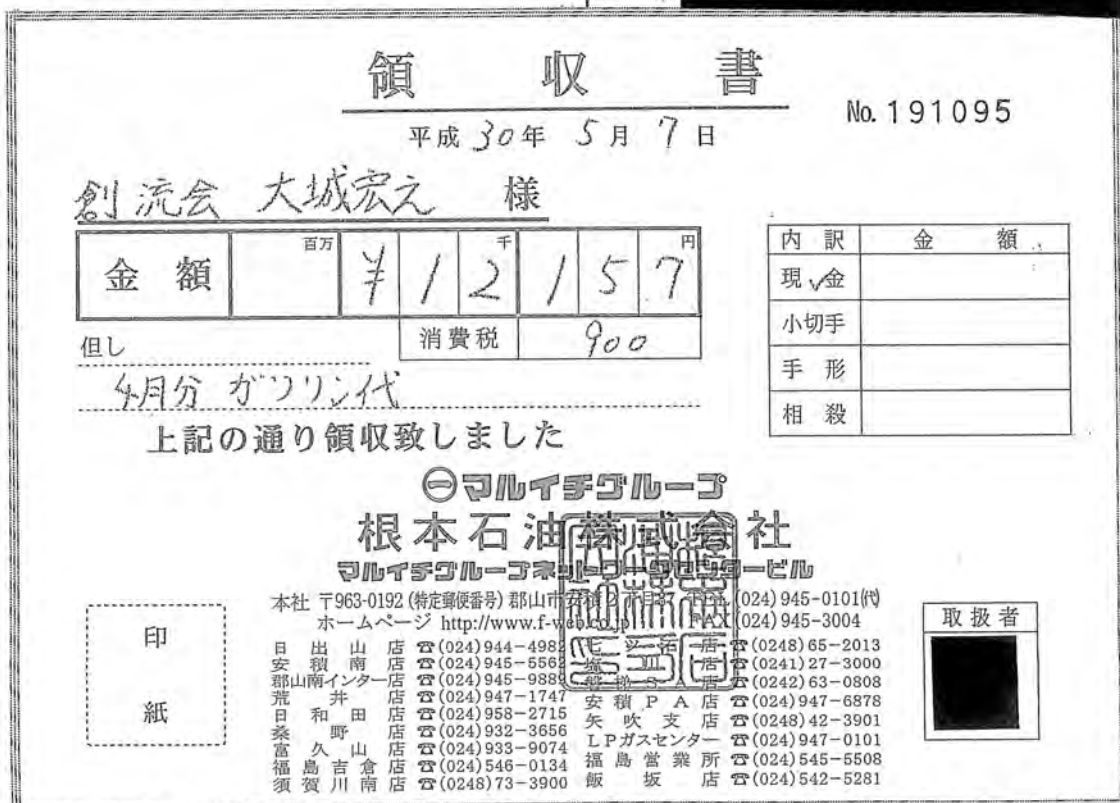 領収書
No. 191095
平成 30年 5月 7日
創流会 大城宏之 様
金額 百万 ¥12千157円
消費税 900
但し
4月分 ガソリン代
上記の通り領収致しました
内訳 金額
現✓金
小切手
手形
相殺
㊀マルイチグループ
根本石油株式会社
マルイチグループネットワークセンタービル
本社 〒963-0192 (特定郵便番号) 郡山市安積2丁目 (024)945-0101(代)
ホームページ http://www.f-web.co.jp FAX (024)945-3004
日出山店 ☎(024)944-4982
安積南店 ☎(024)945-5562
郡山南インター店 ☎(024)945-9889
荒井店 ☎(024)947-1747
日和田店 ☎(024)958-2715
桑野店 ☎(024)932-3656
富久山店 ☎(024)933-9074
福島吉倉店 ☎(024)546-0134
須賀川南店 ☎(0248)73-3900
七ツ沼店 ☎(0248)65-2013
塩川店 ☎(0241)27-3000
磐梯SA店 ☎(0242)63-0808
安積PA店 ☎(024)947-6878
矢吹支店 ☎(0248)42-3901
LPガスセンター ☎(024)947-0101
福島営業所 ☎(024)545-5508
飯坂店 ☎(024)542-5281
印紙
取扱者